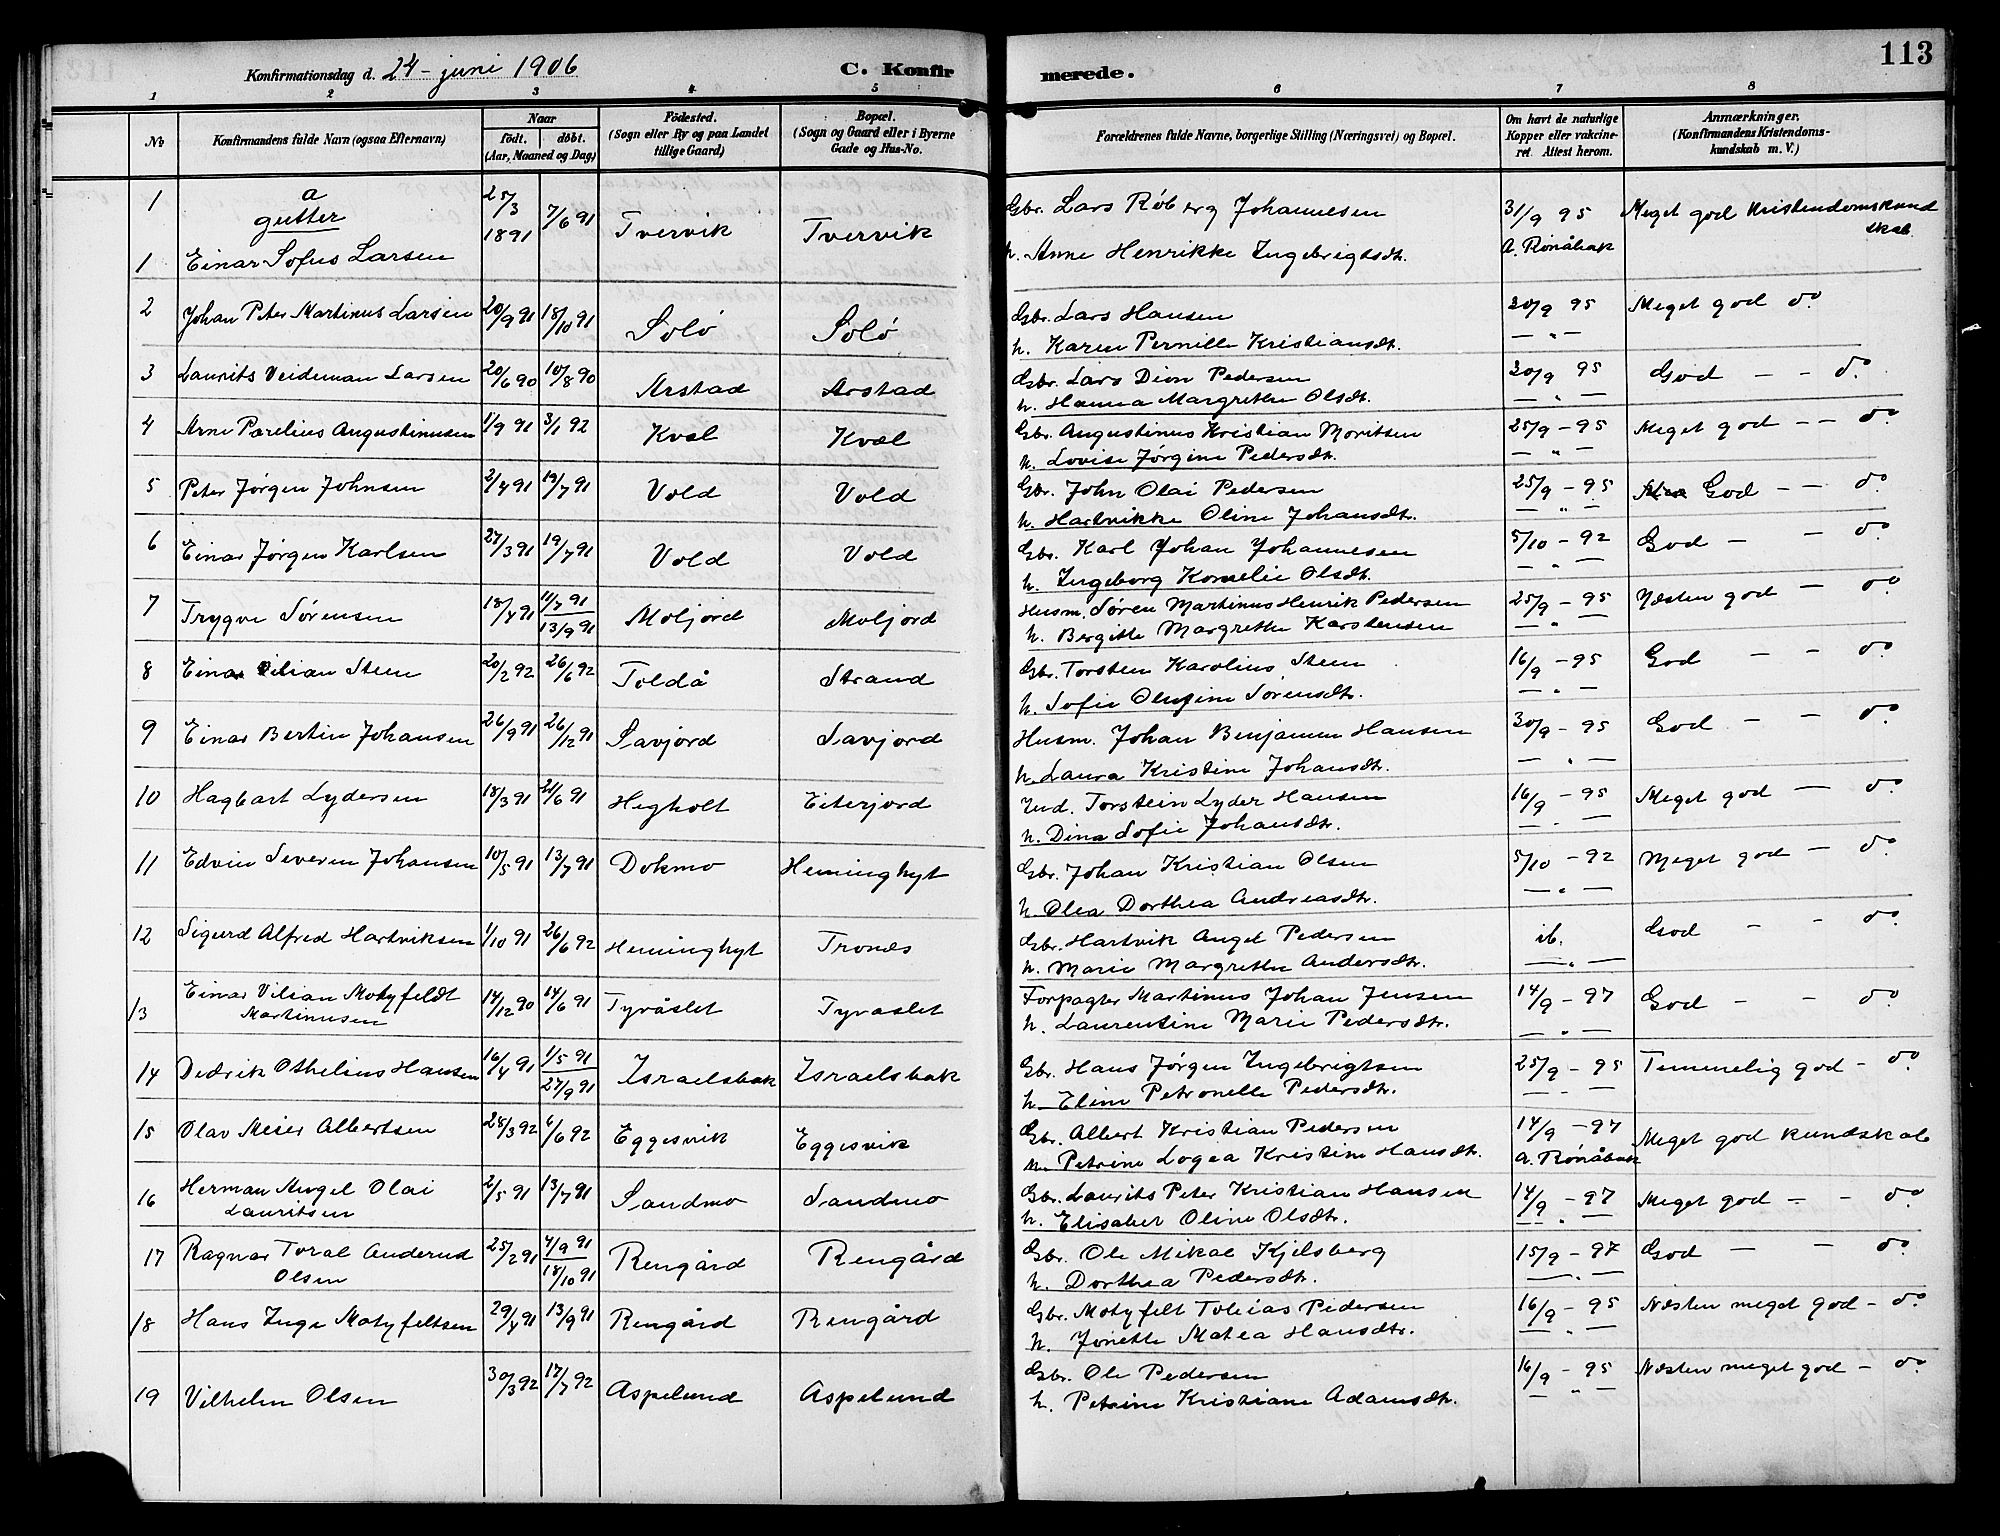 Konfirmationsdag d. 24-juni 1906
C. Konfirmerede.
113
1 2 3 4 5 6 7 8
No
Konfirmandens fulde Navn (ogsaa Efternavn)
Naar
født. døbt.
(Aar, Maaned og Dag)
Fødested.
(Sogn eller By og paa Landet tillige Gaard)
Bopæl.
(Sogn og Gaard eller i Byerne Gade og Hus-No.
Forældrenes fulde Navne, borgerlige Stilling (Næringsvei) og Bopæl.
Om havt de naturlige Kopper eller vakcineret. Attest herom.
Anmærkninger.
(Konfirmandens Kristendomskundskab m. V.)
1 a
gutter
1 Einar Sofus Larsen 25/3 1891 7/6 91 Tvervik Tvervik Gbr. Lars Røberg Johannesen 31/9 95 Meget god Kristendomskundskab
h. Anne Henrikke Ingebrigtsdt. A. Rønåbak
2 Johan Peter Martinus Larsen 20/9 91 18/10 91 Solø Solø Gbr. Lars Hansen 20/9 95 Meget god do
h. Karen Pernille Kristiansdt. — " —
3 Laurits Veideman Larsen 20/6 90 10/8 90 Arstad Arstad Gbr. Lars Dion Pedersen 20/9 95 God — — do
h. Hanna Margrethe Olsdt. — " —
4 Arne Parelius Augustinusen 1/9 91 3/1 92 Kvæl Kvæl Gbr. Augustinus Kristian Moritsen 25/9 - 95 Meget god — — do
h. Lovise Jørgine Pedersdt. — " —
5 Peter Jørgen Johnsen 2/4 91 19/7 91 Vold Vold Gbr. John Olai Pedersen 25/9 - 95 God — — do
h. Hartvikke Oline Johansdt. — " —
6 Einar Jørgen Karlsen 27/3 91 19/7 91 Vold Vold Gbr. Karl Johan Johannesen 5/10 - 92 God — — do
h. Ingeborg Kornelie Olsdt. — " —
7 Trygve Sørensen 18/4 91 11/7 91 13/9 91 Moljord Moljord Husm. Søren Martinus Henrik Pedersen 25/9 - 95 Næsten god — do
h. Bergitte Margrethe Karstensen — " —
8 Einar Vilian Steen 20/2 92 26/6 92 Toldå Strand Gbr. Torsten Karolius Steen 16/9 - 95 God — — do
h. Sofie Olufine Sørensdt. — " —
9 Einar Bertin Johansen 26/9 91 26/12 91 Savjord Savjord Husm. Johan Benjamin Hansen 30/9 - 95 God — — do
h. Laura Kristine Johansdt. — " —
10 Hagbart Lydersen 18/3 91 21/6 91 Hegholt Eiterjord Ind. Torstein Lyder Hansen 16/9 - 95 Meget god — do
h. Dina Sofie Johansdt. — " —
11 Edvin Severin Johansen 10/5 91 13/7 91 Dokmo Heminghyt Gbr. Johan Kristian Olsen 5/10 - 92 Meget god — do
h. Olea Dorthea Andreasdt. — " —
12 Sigurd Alfred Hartviksen 1/10 91 26/6 92 Heminghyt Tronæs Gbr. Hartvik Angel Pedersen ib. God — do
h. Marie Margrethe Andersdt. — " —
13 Einar Vilian Motzfeldt Martinusen 14/12 90 14/6 91 Tyvåslet Tyvaslet Forpagter Martinus Johan Jensen 14/9 - 97 God — — do
h. Laurentine Marie Pedersdt. — " —
14 Dedrik Othelius Hansen 16/4 91 1/5 91 27/9 91 Israelsbak Israelsbak Gbr. Hans Jørgen Ingebrigtsen 25/9 - 95 Temmelig god — do
h. Eline Petronelle Pedersdt. — " —
15 Olav Meier Albertsen 28/3 92 6/6 92 Eggesvik Eggesvik Gbr. Albert Kristian Pedersen 14/9 - 97 Meget god kundskab
h. Petrine Logea Kristine Hansdt. A. Rønåbak
16 Herman Angel Olai Lauritsen 2/5 91 13/7 91 Sandmo Sandmo Gbr. Laurits Peter Kristian Hansen 14/9 - 97 Meget god — — do
h. Elisabet Oline Olsdt. — " —
17 Ragnar Toral Anderud Olsen 25/2 91 4/9 91 18/10 91 Rengård Rengård Gbr. Ole Mikal Kjelsberg 15/9 - 97 God — — do
h. Dorthea Pedersdt. — " —
18 Hans Inge Motzfeltsen 29/4 91 13/9 91 Rengård Rengård Gbr. Motzfelt Tobias Pedersen 16/9 - 95 Næsten meget god — do
h. Jonette Matea Hansdtr. — " —
19 Vilhelm Olsen 30/3 92 17/7 92 Aspelund Aspelund Gbr. Ole Pedersen 16/9 - 95 Næsten meget god — do
h. Petrine Kristiane Adamsdt. — " —